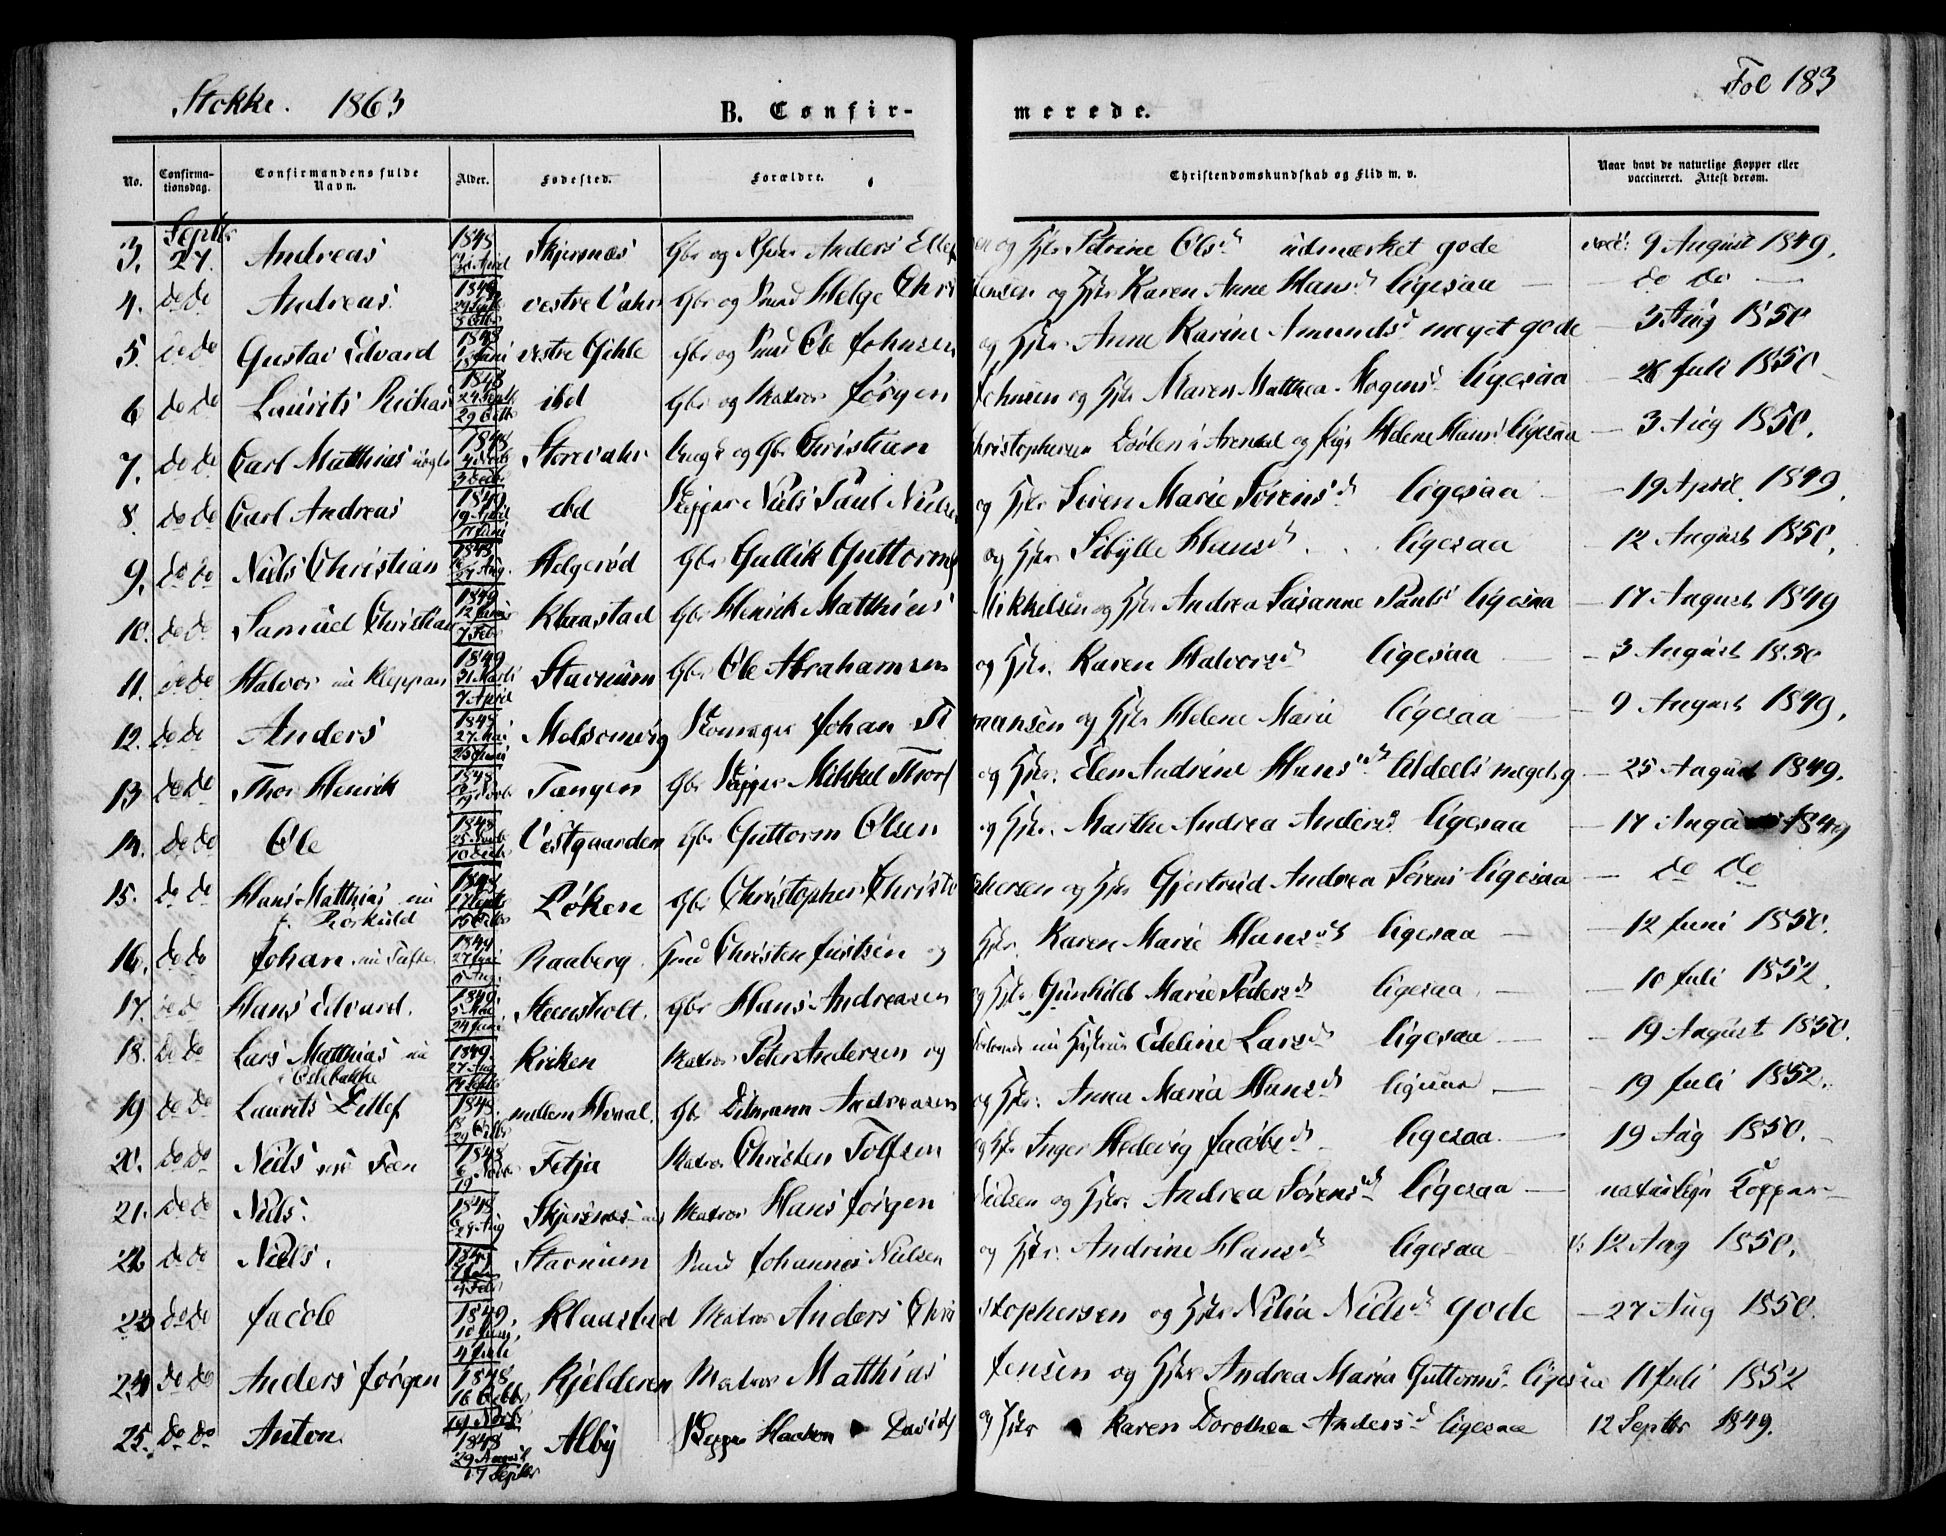 Stokke. 1863 B. Confirmerede. Fol 183
No. Confirmationsdag. Confirmandens fulde Navn. Alder. Fødested. Forældre. Christendomskundskab og Flid m. v. Naar havt de naturlige Kopper eller vaccineret. Attest derom.
3. Septbr 27. Andreas 1848 Skjersnæs Gbr og Anders Ellefsen og Hstr Petrine Olsd udmærket gode vacc: 9 August 1849.
4. do do Andreas 1848 29 Septbr 5 Octbr vestre Vahr Gbr og Smed Helge Christensen og Hstr Karen Anne Hansd ligesaa — do do —
5. do do Gustav Edvard 1848 Juni vestre Gihle Gbr og Smed Ole Johnsen og Hstr Anne Karine Amundsd meget gode — 3 Aug 1850
6 do do Laurits Richard 1848 24 Septb 29 Octb ibd Gbr og Matros Jørgen Johnsen og Hstr Maren Matthea Mogensd ligesaa — 26 Juli 1850
7. do do Carl Matthias uægte 1848 3 Decbr Storevahr Unge og Gbr Christian Christophersen Døølen i Arendal og Pige Helene Hansd ligesaa — 3 Aug 1850.
8 do do Carl Andreas 1849 19 April 17 Juni ibd Skipper Niels Paul Nielsen og Hstr Siren Marie Sørensd ligesaa — 19 April 1849
9. do do Niels Christian 1848 27 Aug. Helgerød Gbr Gullik Guttorms og Hstr Sibylle Hansd ligesaa — 12 August 1850.
10. do do Samuel Christian 1849 12 Januar 7 Febr Klaastad Gbr Henrik Matthias Mikkelsen og Hstr Andrea Susanne Paulsd ligesaa — 17 August 1849
11. do do Halvor nu Kleppan 1849 31 Marts 7 April Stavnum Gbr Ole Abrahamsen og Hstr. Karen Halvorsd ligesaa — 3 August 1850
12. do do Anders 1848 27 Mai 25 Juni Melsomvig Skomager Johan Hermansen og Hstr Helene Marie ligesaa — 9 August 1849.
13 do do Thor Henrik 1848 19 Novb Tangen Gbr Skipper Mikkel Thors og Hstr. Elen Andrine Hansd Udeels megetg. — 25 August 1849.
14. do do Ole 1848 25 Novb 10 Decbr Vestgaarden Gbr Guttorm Olsen og Hstr. Marthe Andrea Andersd ligesaa — 17 August 1849
15. do do Hans Matthias nu p. Roskuld 1848 17 Septb 15 Octbr Løken Gbr Christopher Christophersen og Hstr Gjertrud Andrea Sørensd ligesaa — do do
16. do do Johan nu Tufte 1849 27 Juni 5 Aug. Raaberg Christen Justsen og Hstr. Karen Marie Hansd ligesaa — 12 Juni 1850.
17. do do Hans Edvard. 1849. 5 Mai 24 Juni Steensholt. Gbr Hans Andreasen og Hstr Gunhild Marie Pedersd ligesaa — 10 Juli 1852.
18. do do Lars Matthias nu i Edebakke 1849. 27 Aug. 14 Septb Kirken Matros Peter Andersen og nu Hustrue Edeline Larsd ligesaa — 19 August 1850.
19 do do Laurits Ditlef 1848 29 Octbr mellem Hvaal. Gbr Ditmann Andreasen og Hstr. Anna Maria Hansd ligesaa — 19 Juli 1852.
20. do do Niels nu Fæn 1848 6 Novbr 19 Fetja Matros Christen Tolfsen og Hstr Inger Hedevig Jacobsd ligesaa. — 19 Aug 1850. —
21. do do Niels. 1848 6 27 Aug Skjersnæs Matros Hans Jørgen Nielsen og Hstr. Andrea Sørensd ligesaa — naturlige Kopper —
22 do do Niels. 4 Febr Stavnum Smed Johannes Nielsen og Hstr. Andrine Hansd ligesaa — V: 12 Aug 1850.
23 do do Jacob 1849. 10 Juni, 4 Juli Klaastad Matros Anders Christophersen og Hstr Nilia Nielsd gode — 27 Aug 1850.
24 do do Anders Jørgen 1848 16 Octbr 19 Novbr Kjelderen Matros Matthias Jensen og Hstr Andrea Maria Guttormsd ligesaa 11 Juli 1852
25. do do Anton 1848 29 August 17 Septbr Alby Skipper Haakon Davids og Hstr Karen Dorothea Andersd ligesaa 12 Septbr 1849.